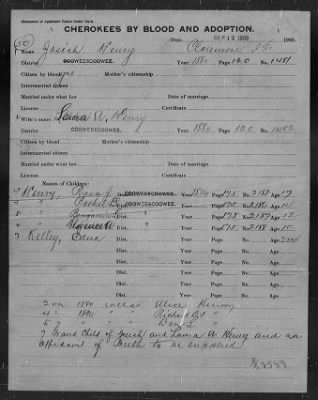 CHEROKEES BY BLOOD AND ADOPTION.
Date SEP 12 1900 1900.
Name Josiah Henry Claremore I.T.
District COOWEESCOOWEE. Year 1880 Page 120 No. 1481
Citizen by blood yes Mother's citizenship
Intermarried citizen
Married under what law Date of marriage
License Certificate
Wife's name Laura A. Henry
District COOWEESCOOWEE. Year 1880 Page 120 No. 1482
Citizen by blood Mother's citizenship
Intermarried citizen
Married under what law Date of marriage
License Certificate
Names of Children:
Henry, Rosa Dist. COOWEESCOOWEE. Year 1896 Page 175 No. 2185 Age 17
" Dist. COOWEESCOOWEE. Year Page 175 No. Age 14
" Benjamin Dist. " Year Page 175 No. 2187 Age 12
" Dist. " Year Page 175 No. 2188 Age 10
7 Kelley, Edna Dist. Year Page No. Age
Dist. Year Page No. Age
Dist. Year Page No. Age
Dist. Year Page No. Age
Dist. Year Page No. Age
Dist. Year Page No. Age
2 on 1880 rolls Alice Henry
4 " 1896 "
5 " " Ben "
7 Grand Child of Josiah and Laura A Henry and an
affidavit of birth to be supplied